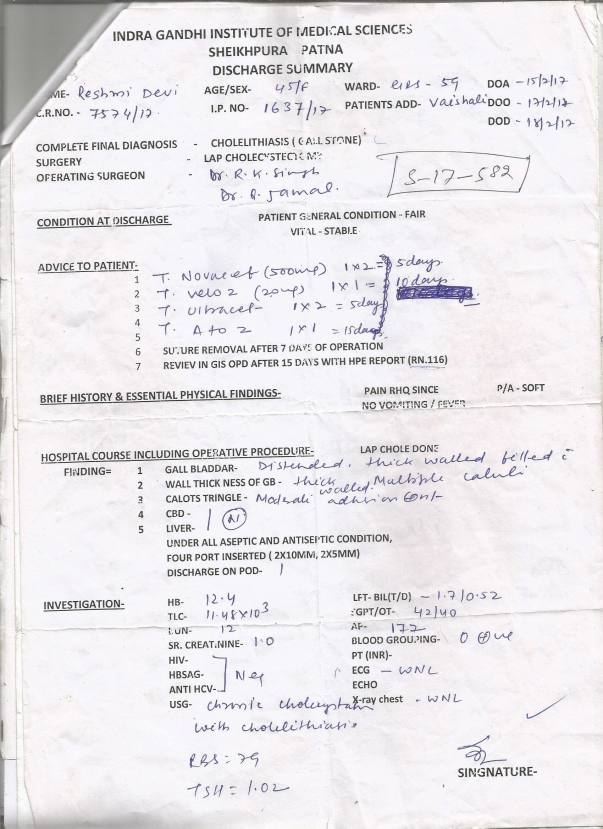 INDRA GANDHI INSTITUTE OF MEDICAL SCIENCES
SHEIKHPURA PATNA
DISCHARGE SUMMARY
ME- Reshmi Devi AGE/SEX- 45/F WARD- GIS - 59 DOA - 15/2/17
C.R.NO. - 7574/17. I.P. NO- 1637/17 PATIENTS ADD- Vaishali DOO - 17/2/17
DOD - 18/2/17
COMPLETE FINAL DIAGNOSIS - CHOLELITHIASIS ( GALL STONE)
SURGERY - LAP CHOLECYSTECTOMY
OPERATING SURGEON - Dr. R. K. Singh
Dr. Q. Jamal.
S-17-582
CONDITION AT DISCHARGE PATIENT GENERAL CONDITION - FAIR
VITAL - STABLE
ADVICE TO PATIENT-
1 T. Novacef (500mg) 1 x 2 = 5 days
2 T. Veloz (20mg) 1 x 1 = 10 days
3 T. Ultracet - 1 x 2 = 5 day
4 T. A to Z 1 x 1 = 15 days
5
6 SUTURE REMOVAL AFTER 7 DAYS OF OPERATION
7 REVIEV IN GIS OPD AFTER 15 DAYS WITH HPE REPORT (RN.116)
BRIEF HISTORY & ESSENTIAL PHYSICAL FINDINGS- PAIN RHQ SINCE P/A - SOFT
NO VOMITING / FEVER
HOSPITAL COURSE INCLUDING OPERATIVE PROCEDURE- LAP CHOLE DONE
FINDING= 1 GALL BLADDAR- Distended, thick walled filled c̄
2 WALL THICK NESS OF GB - thick walled. Multiple calculi
3 CALOTS TRINGLE - Moderate adhesion
4 CBD -
5 LIVER- (N)
UNDER ALL ASEPTIC AND ANTISEPTIC CONDITION,
FOUR PORT INSERTED ( 2X10MM, 2X5MM)
DISCHARGE ON POD- 1
INVESTIGATION- HB- 12.4 LFT- BIL(T/D) - 1.7/0.52
TLC- 11.48x10³ SGPT/OT- 42/40
BUN- 12 AP- 172
SR. CREATININE- 1.0 BLOOD GROUPING- O ⊕ve
HIV- PT (INR)-
HBSAG- Neg ECG - WNL
ANTI HCV- ECHO
USG- chronic cholecystitis X-ray chest - WNL
with cholelithiasis
RBS = 79
TSH = 1.02
SINGNATURE-